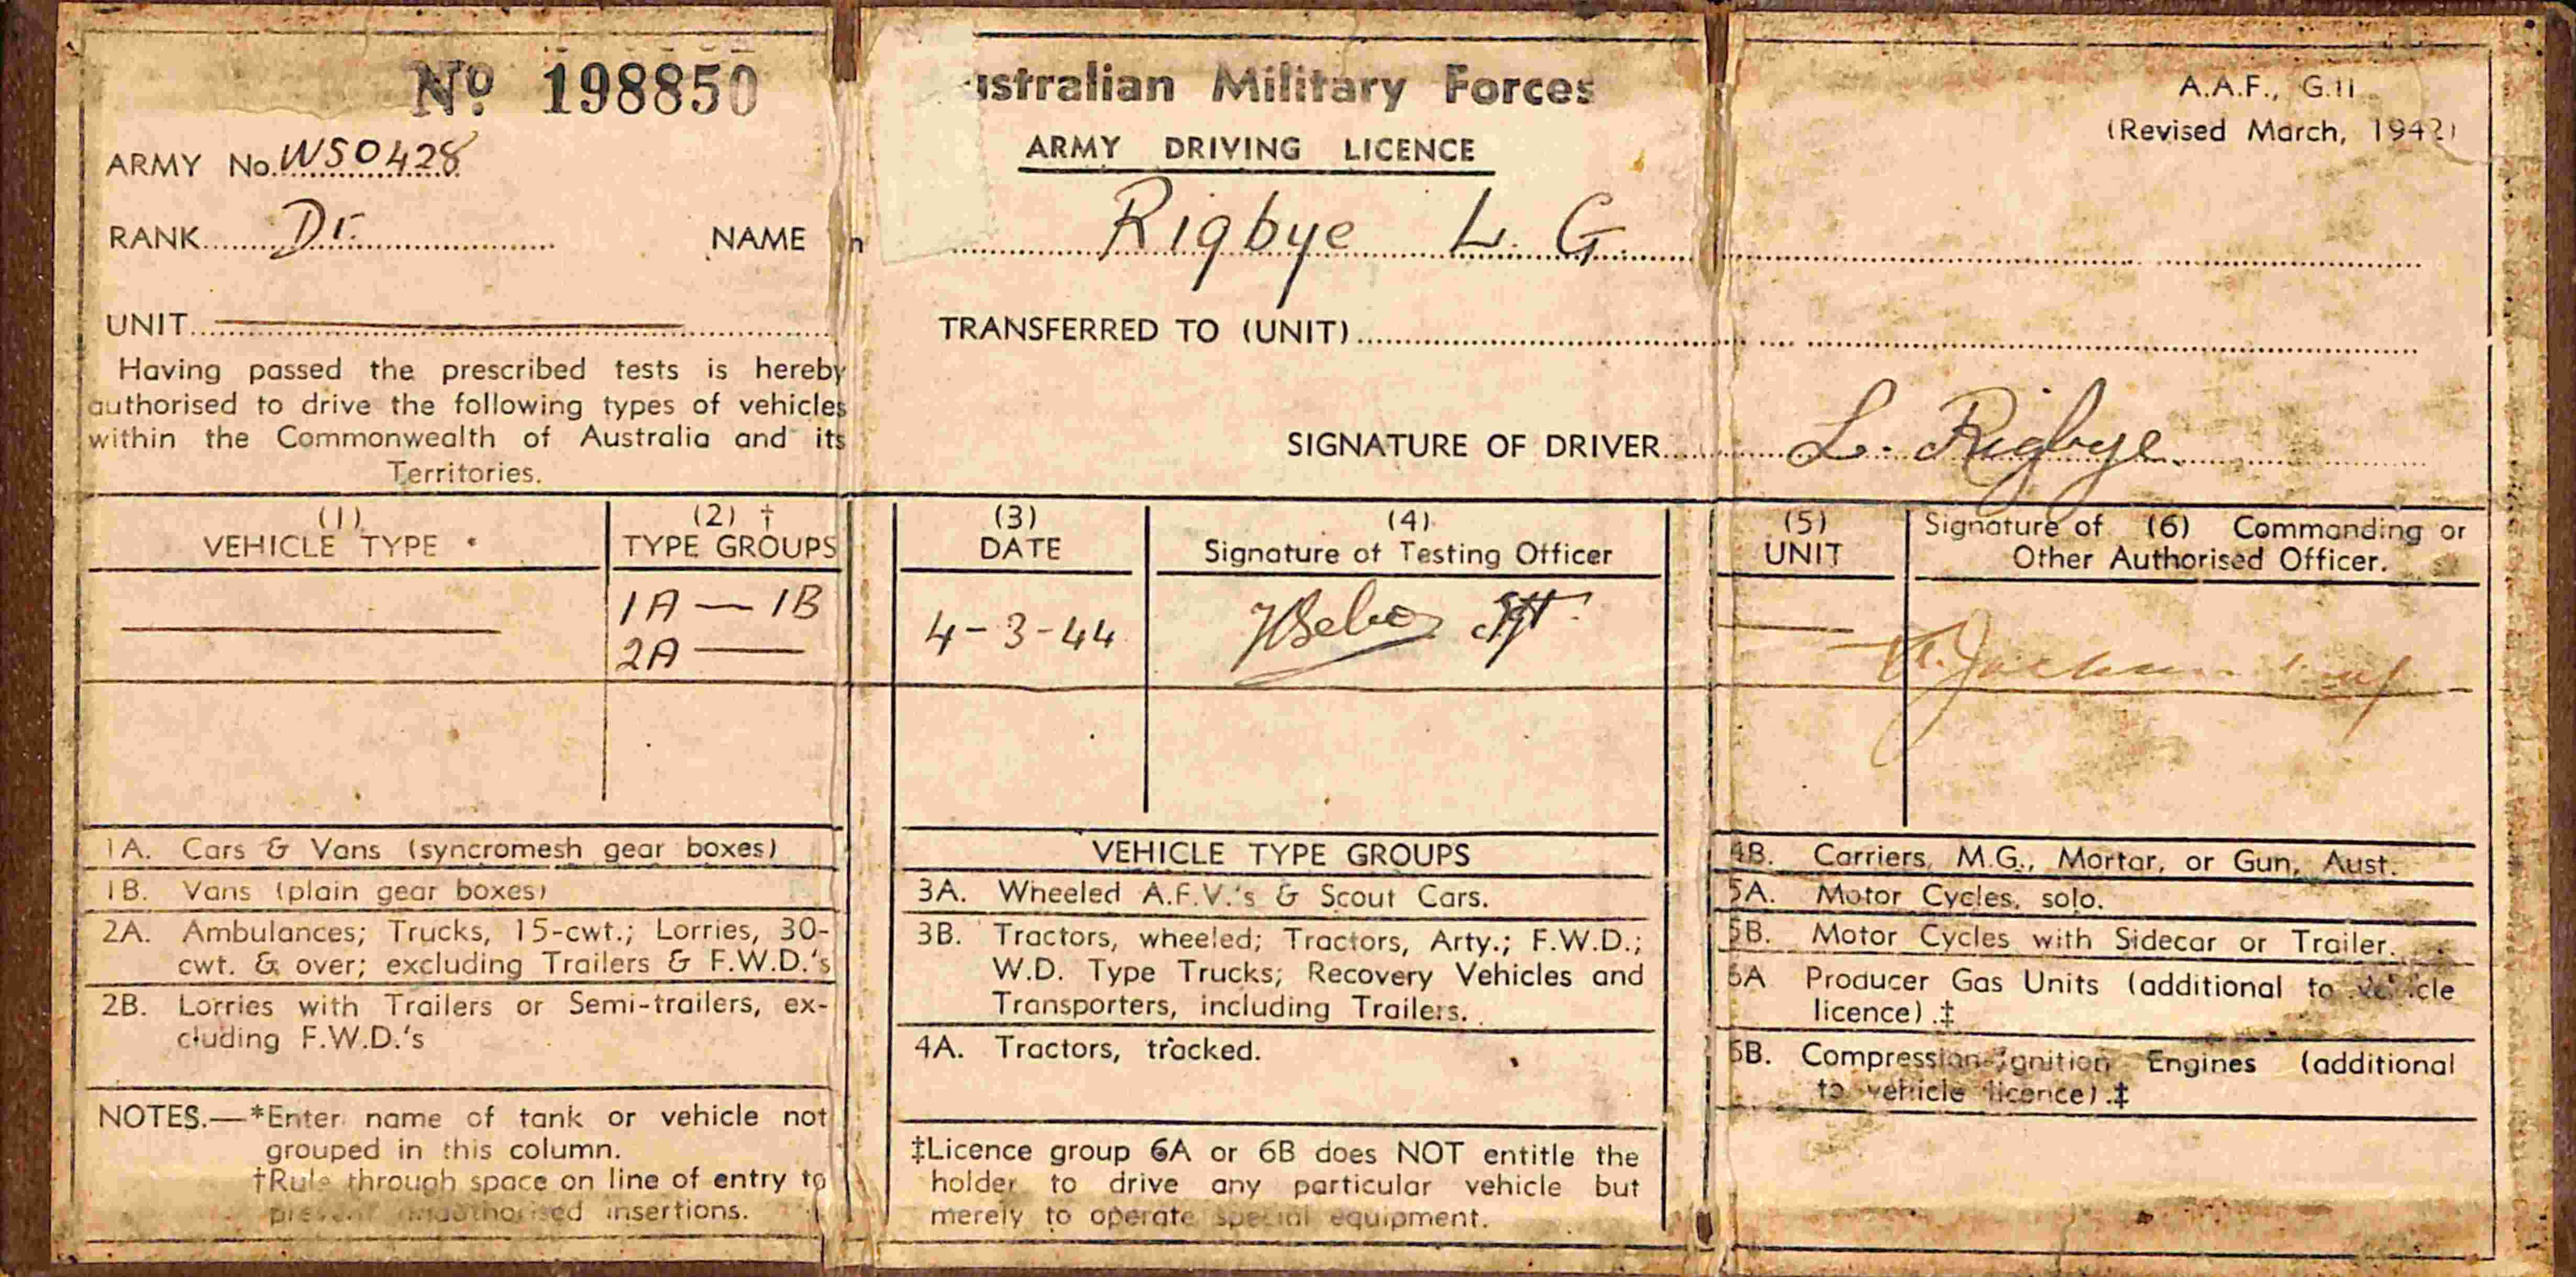 No. 198850
ustralian Military Forces
A.A.F., G.11
ARMY DRIVING LICENCE
(Revised March, 1942)
ARMY No. WS0428
RANK Dr. NAME in Rigbye L. G.
UNIT
TRANSFERRED TO (UNIT)
Having passed the prescribed tests is hereby
authorised to drive the following types of vehicles
within the Commonwealth of Australia and its
Territories.
SIGNATURE OF DRIVER L. Rigbye
(1)
VEHICLE TYPE *
(2) †
TYPE GROUPS
(3)
DATE
(4)
Signature of Testing Officer
(5)
UNIT
Signature of (6) Commanding or
Other Authorised Officer.
1A — 1B
2A —
4-3-44
Sgt
1A. Cars & Vans (syncromesh gear boxes)
1B. Vans (plain gear boxes)
2A. Ambulances; Trucks, 15-cwt.; Lorries, 30-
cwt. & over; excluding Trailers & F.W.D.'s
2B. Lorries with Trailers or Semi-trailers, ex-
cluding F.W.D.'s
NOTES.—*Enter name of tank or vehicle not
grouped in this column.
†Rule through space on line of entry to
prevent unauthorised insertions.
VEHICLE TYPE GROUPS
3A. Wheeled A.F.V.'s & Scout Cars.
3B. Tractors, wheeled; Tractors, Arty.; F.W.D.;
W.D. Type Trucks; Recovery Vehicles and
Transporters, including Trailers.
4A. Tractors, tracked.
‡Licence group 6A or 6B does NOT entitle the
holder to drive any particular vehicle but
merely to operate special equipment.
4B. Carriers, M.G., Mortar, or Gun, Aust.
5A. Motor Cycles, solo.
5B. Motor Cycles with Sidecar or Trailer.
6A Producer Gas Units (additional to vehicle
licence).‡
6B. Compression-Ignition Engines (additional
to vehicle licence).‡